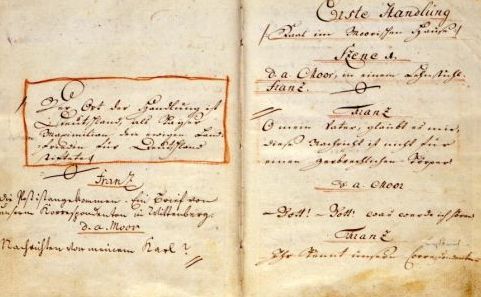 Der Ort der Handlung ist
Deutschland, als Kaiser
Maximilian, den ewigen Land-
frieden für Deutschland
stiftete
Franz
die Post ist angekommen. Ein Brief von
unserm Korrespondenten in Wittenberg.
d. a. Moor.
Nachrichten von meinem Karl?
Erste Handlung
Saal im Moorischen Hause
Szene 1.
d. a. Moor, in einem Lehnstuhl.
Franz.
Franz
O mein Vater, glaubt es mir,
diese Nachricht ist nicht für
einen zerbrechlichen Körper
d. a. Moor
Gott! Gott! was werde ich hören
Franz
Ihr kennt unsern Correspondenten